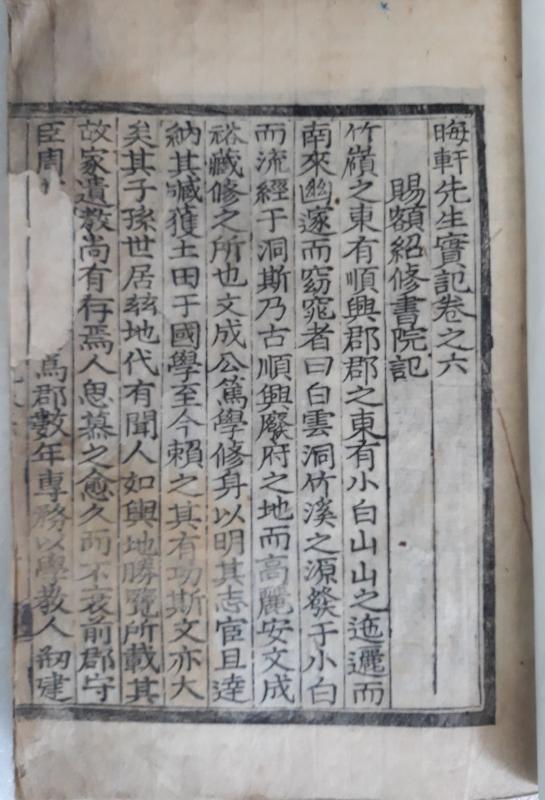 晦軒先生實記卷之六
賜額紹修書院記
竹嶺之東有順興郡郡之東有小白山山之迤邐而
南來幽邃而窈窕者曰白雲洞竹溪之源發于小白
而流經于洞斯乃古順興廢府之地而高麗安文成
裕藏修之所也文成公篤學修身以明其志宦且達
納其臧獲土田于國學至今賴之其有功斯文亦大
矣其子孫世居玆地代有聞人如輿地勝覽所載其
故家遺敎尚有存焉人思慕之愈久而不衰前郡守
臣周 爲郡數年專務以學敎人刱建